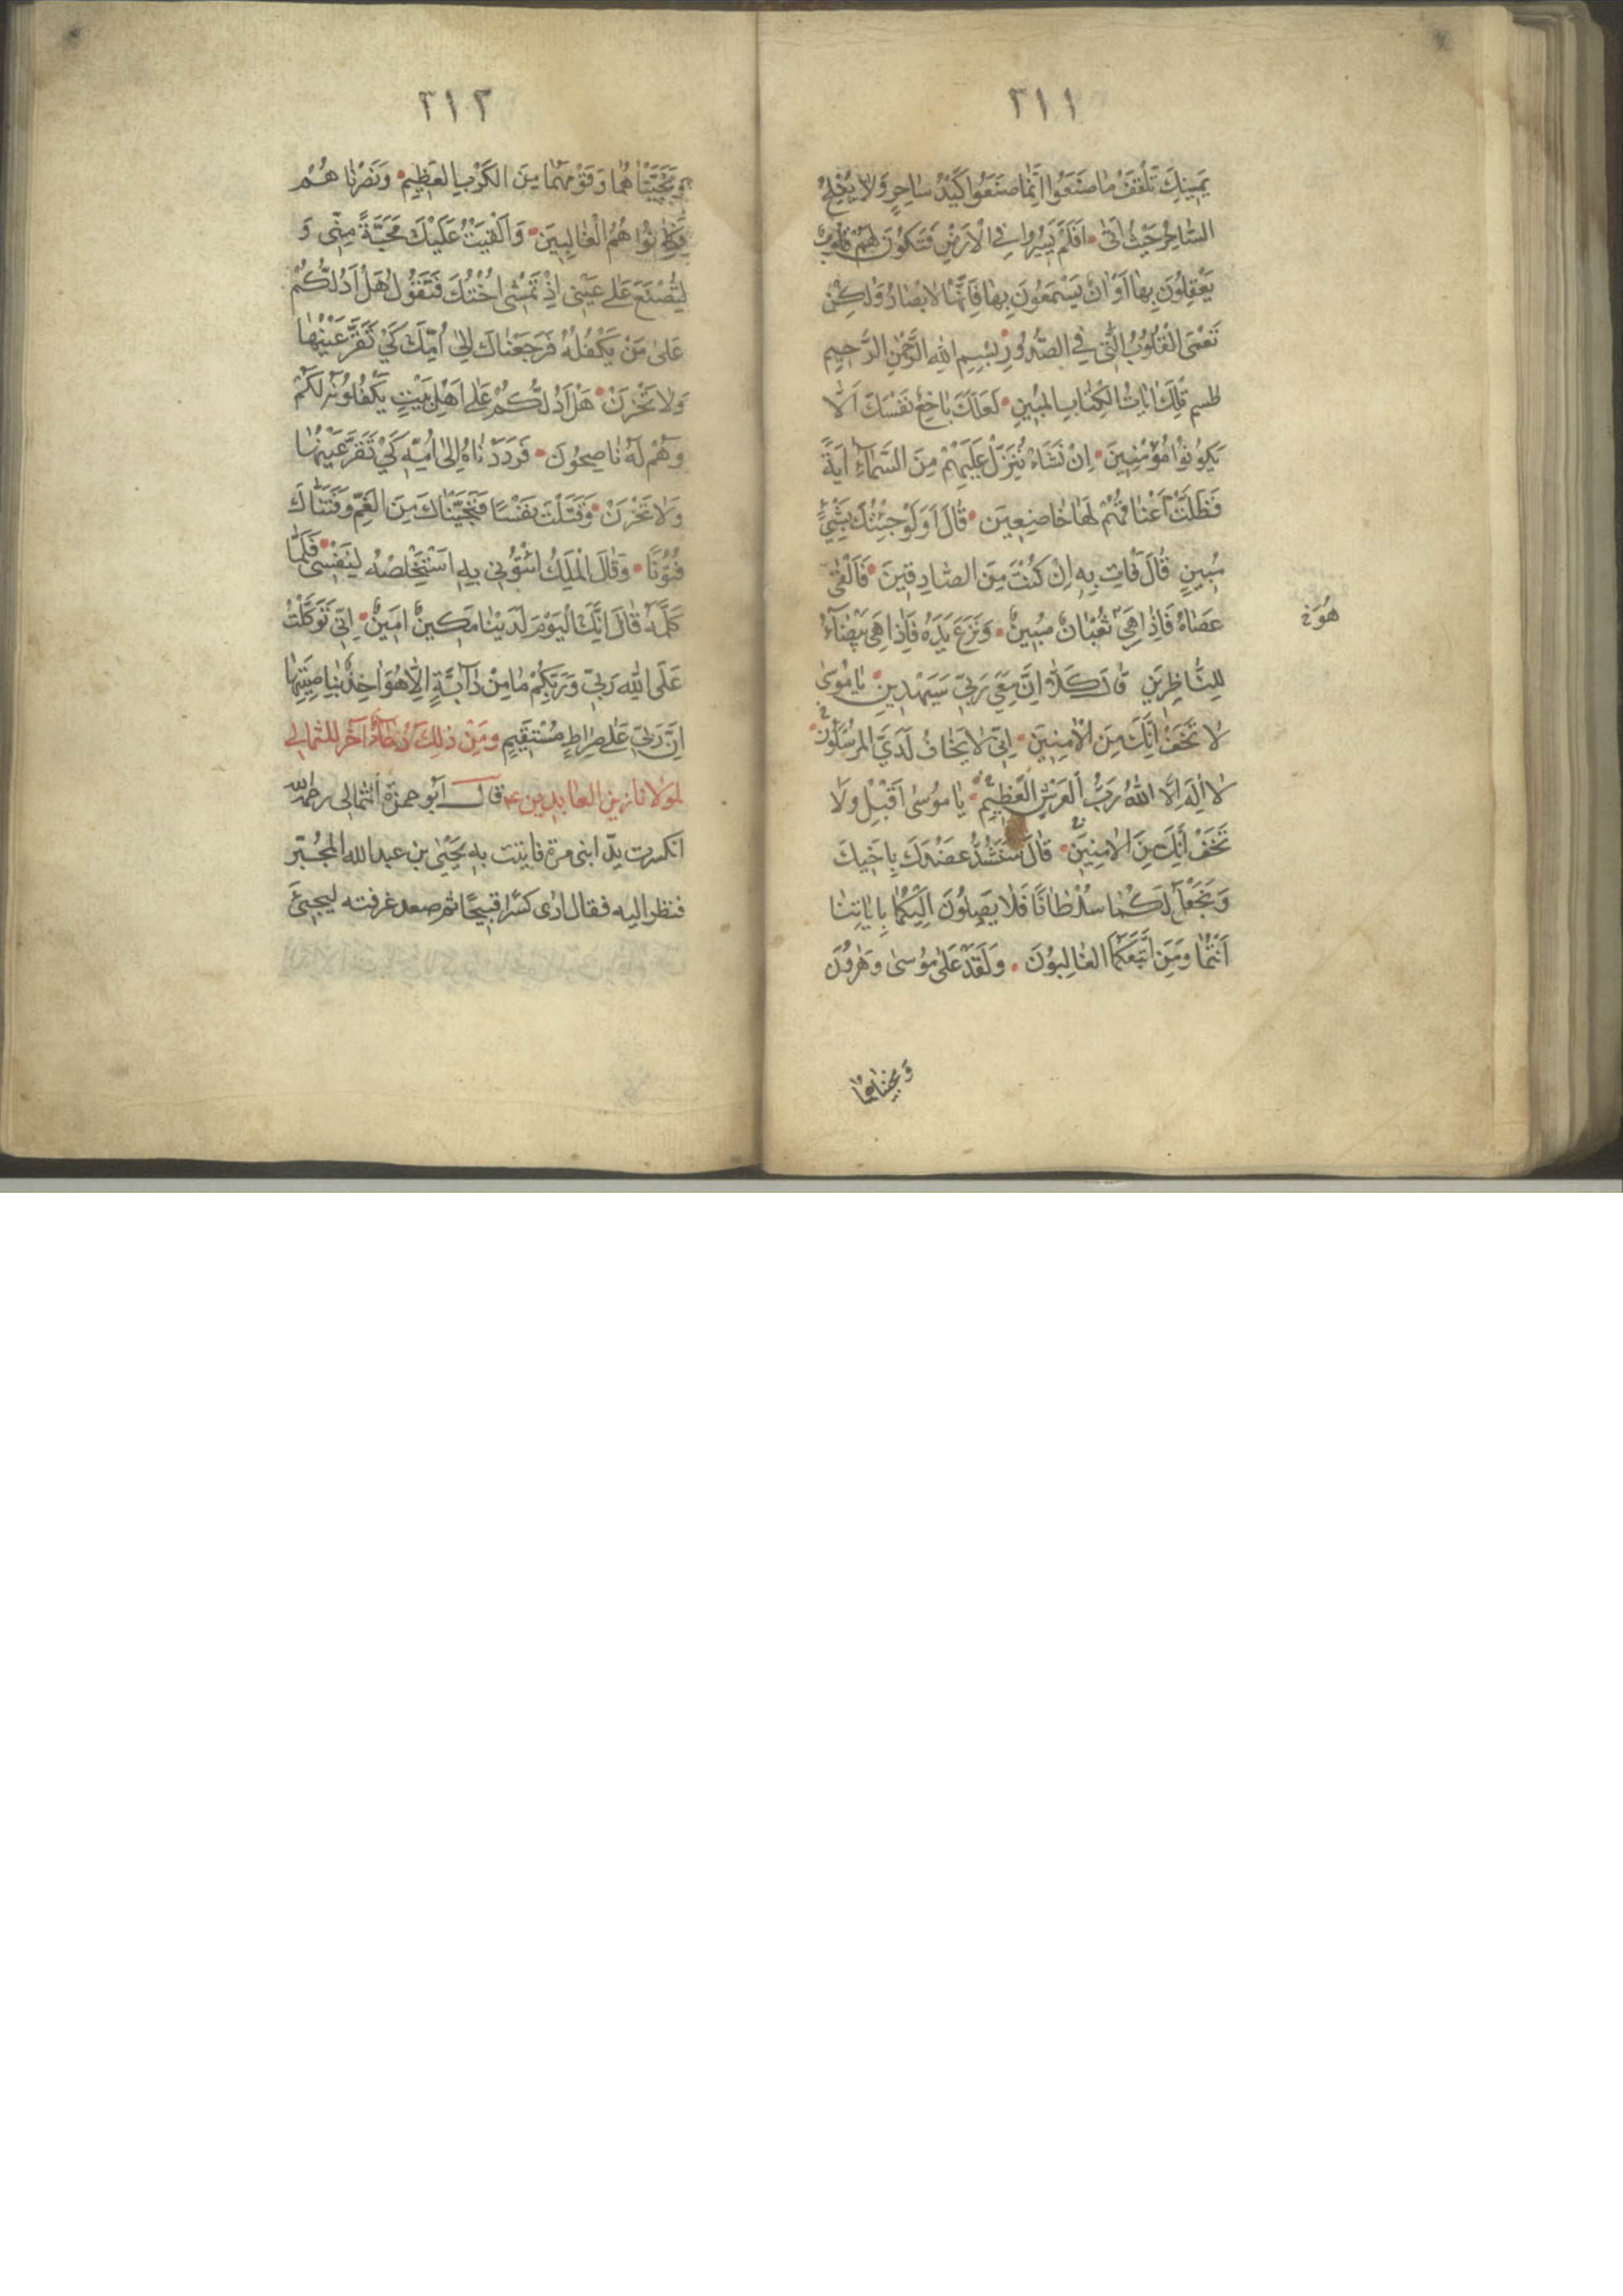 ٢١١
يَمِينِكَ تَلْقَفْ مٰا صَنَعُوا اِنَّمٰا صَنَعُوا كَيْدُ سٰاحِرٍ وَلاٰ يُفْلِحُ
السّٰاحِرُ حَيْثُ اَتٰى • اَفَلَمْ يَسِيرُوا فِي الْاَرْضِ فَتَكُونَ لَهُمْ قُلُوبٌ
يَعْقِلُونَ بِهٰا اَوْ اٰذٰانٌ يَسْمَعُونَ بِهٰا فَاِنَّهٰا لا تَعْمَى الْاَبْصٰارُ وَلٰكِنْ
تَعْمَى الْقُلُوبُ الَّتِي فِي الصُّدُورِ • بِسْمِ اللهِ الرَّحْمٰنِ الرَّحِيمِ
طسم تِلْكَ اٰيٰاتُ الْكِتٰابِ الْمُبِينِ • لَعَلَّكَ بٰاخِعٌ نَفْسَكَ اَلّٰا
يَكُونُوا مُؤْمِنِينَ • اِنْ نَشَاْ نُنَزِّلْ عَلَيْهِمْ مِنَ السَّمٰآءِ اٰيَةً
فَظَلَّتْ اَعْنٰاقُهُمْ لَهٰا خٰاضِعِينَ • قٰالَ اَوَلَوْ جِئْتُكَ بِشَيْءٍ
مُبِينٍ قٰالَ فَاْتِ بِهِ اِنْ كُنْتَ مِنَ الصّٰادِقِينَ • فَاَلْقٰى
عَصٰاهُ فَاِذٰا هِيَ ثُعْبٰانٌ مُبِينٌ • وَنَزَعَ يَدَهُ فَاِذٰا هِيَ بَيْضٰآءُ
لِلنّٰاظِرِينَ قٰالَ كَلّٰا اِنَّ مَعِيَ رَبّي سَيَهْدِينِ • يٰا مُوسٰى
لاٰ تَخَفْ اِنَّكَ مِنَ الْاٰمِنِينَ • اِنّي لاٰ يَخٰافُ لَدَيَّ الْمُرْسَلُونَ •
لاٰ اِلٰهَ اِلَّا اللهُ رَبُّ الْعَرْشِ الْعَظِيمِ • يٰا مُوسٰى اَقْبِلْ وَلاٰ
تَخَفْ اِنَّكَ مِنَ الْاٰمِنِينَ • قٰالَ سَنَشُدُّ عَضُدَكَ بِاَخِيكَ
وَنَجْعَلُ لَكُمٰا سُلْطٰانًا فَلاٰ يَصِلُونَ اِلَيْكُمٰا بِاٰيٰاتِنٰا
اَنْتُمٰا وَمَنِ اتَّبَعَكُمَا الْغٰالِبُونَ • وَلَقَدْ عَلٰى مُوسٰى وَهٰرُونَ
وَنجيناهما
٢١٢
وَنَجَّيْنٰاهُمٰا وَقَوْمَهُمٰا مِنَ الْكَرْبِ الْعَظِيمِ • وَنَصَرْنٰاهُمْ
فَكٰانُوا هُمُ الْغٰالِبِينَ • وَاَلْقَيْتُ عَلَيْكَ مَحَبَّةً مِنّي وَ
لِتُصْنَعَ عَلٰى عَيْنِي اِذْ تَمْشِي اُخْتُكَ فَتَقُولُ هَلْ اَدُلُّكُمْ
عَلٰى مَنْ يَكْفُلُهُ فَرَجَعْنٰاكَ اِلٰى اُمِّكَ كَيْ تَقَرَّ عَيْنُهٰا
وَلاٰ تَحْزَنَ • هَلْ اَدُلُّكُمْ عَلٰى اَهْلِ بَيْتٍ يَكْفُلُونَهُ لَكُمْ
وَهُمْ لَهُ نٰاصِحُونَ • فَرَدَدْنٰاهُ اِلٰى اُمِّهِ كَيْ تَقَرَّ عَيْنُهٰا
وَلاٰ تَحْزَنَ • وَقَتَلْتَ نَفْسًا فَنَجَّيْنٰاكَ مِنَ الْغَمِّ وَفَتَنّٰاكَ
فُتُونًا • وَقٰالَ الْمَلِكُ ائْتُونِي بِهِ اَسْتَخْلِصْهُ لِنَفْسِي • فَلَمّٰا
كَلَّمَهُ قٰالَ اِنَّكَ الْيَوْمَ لَدَيْنٰا مَكِينٌ اَمِينٌ • اِنّي تَوَكَّلْتُ
عَلَى اللهِ رَبّي وَرَبِّكُمْ مٰا مِنْ دٰآبَّةٍ اِلّٰا هُوَ اٰخِذٌ بِنٰاصِيَتِهٰا
اِنَّ رَبّي عَلٰى صِرٰاطٍ مُسْتَقِيمٍ وَمِنْ ذٰلِكَ دُعٰآءٌ اٰخَرُ للثمالي
لمولانا زين العابدين ع قال اَبو حمزة الثمالي رحمه الله
انكسرت يد ابني مرة فاتيت به يَحْيٰى بن عبد الله المجُبّر
فنظر اليه فقال ارٰى كسرًا قبيحًا ثم صعد غرفته ليجيئَ